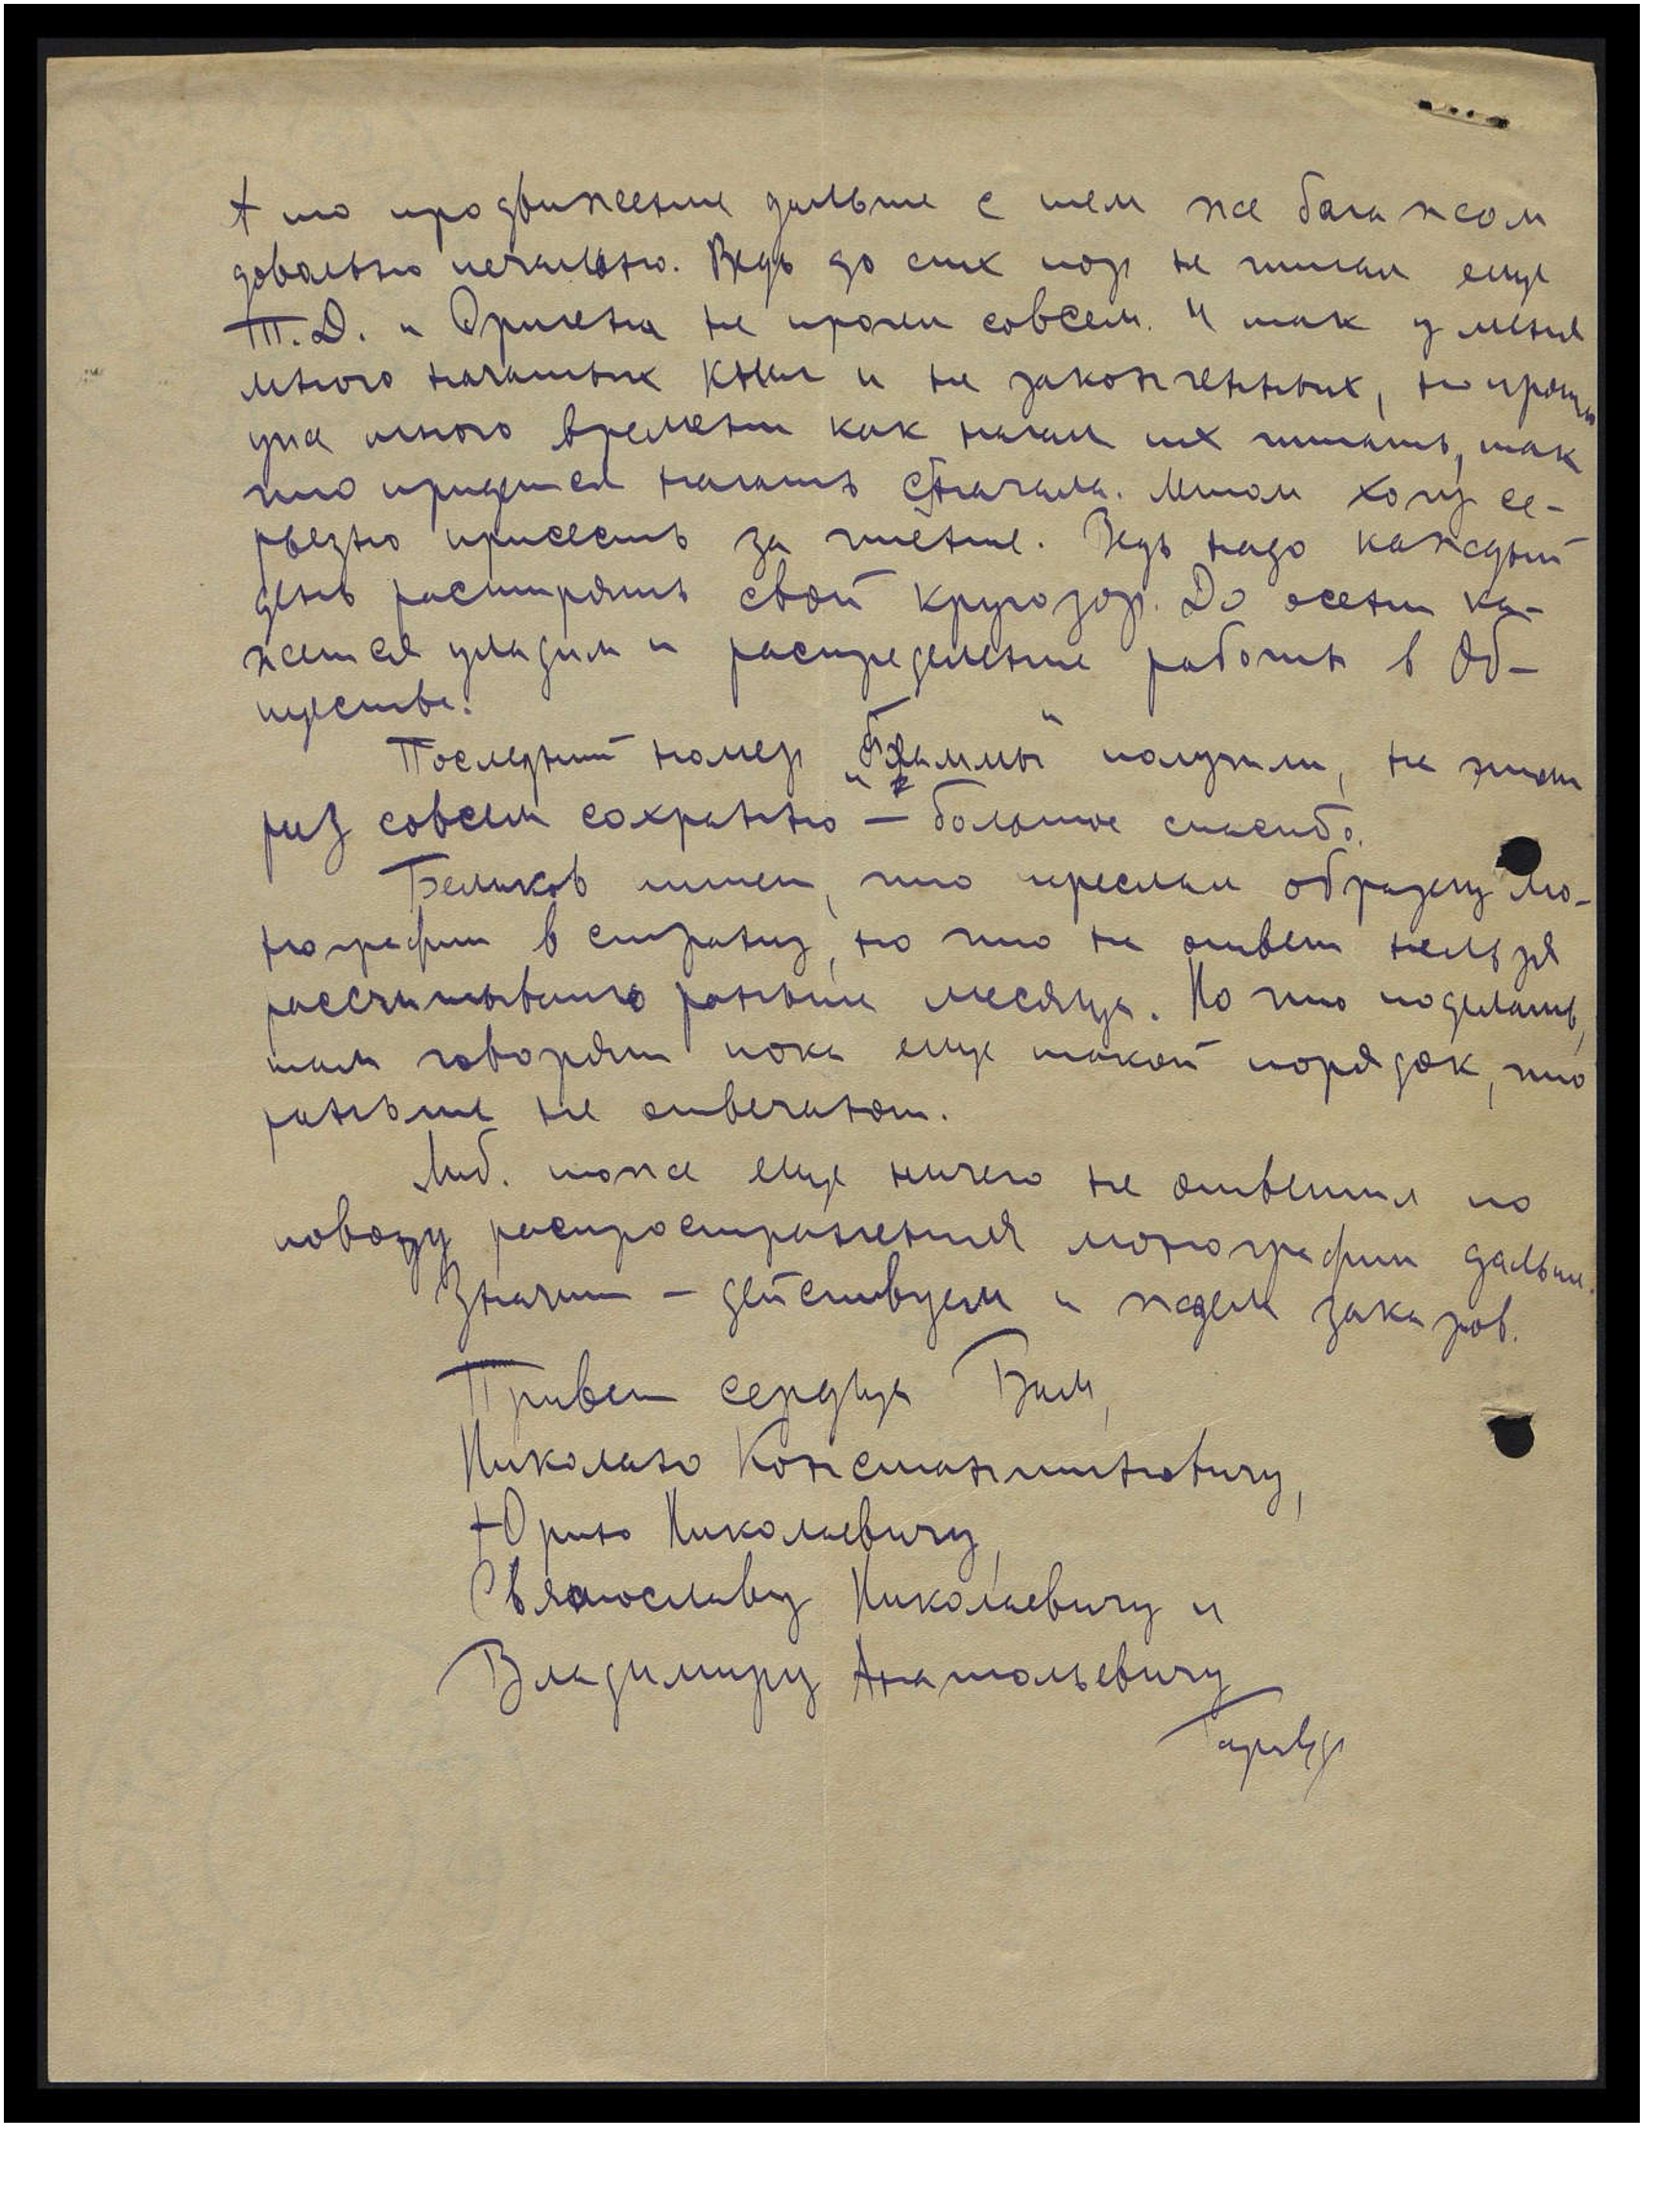 А то продвижение дальше с тем же багажом
довольно печально. Ведь до сих пор не читал еще
Т.Д. и Оригена не прочел совсем. И так у меня
много начатых книг и не законченных, но прошло
уже много времени как начал их читать, так
что придется начать сначала. Летом хочу се-
рьезно присесть за чтение. Ведь надо каждый
день расширять свой кругозор. До осени ка-
жется уладим и распределение работы в Об-
ществе.
Последний номер „Фламмы" получили, на этот
раз совсем сохранно — большое спасибо.
Беликов пишет, что переслал образец мо-
нографии в страну, но что на ответ нельзя
рассчитывать раньше месяца. Но что поделать,
там говорят пока еще такой порядок, что
раньше не отвечают.
Либ. тоже еще ничего не ответил по
поводу распространения монографии дальше.
Значит — действуем и ждем заказов.
Привет сердца Вам,
Николаю Константиновичу,
Юрию Николаевичу,
Святославу Николаевичу и
Владимиру Анатольевичу